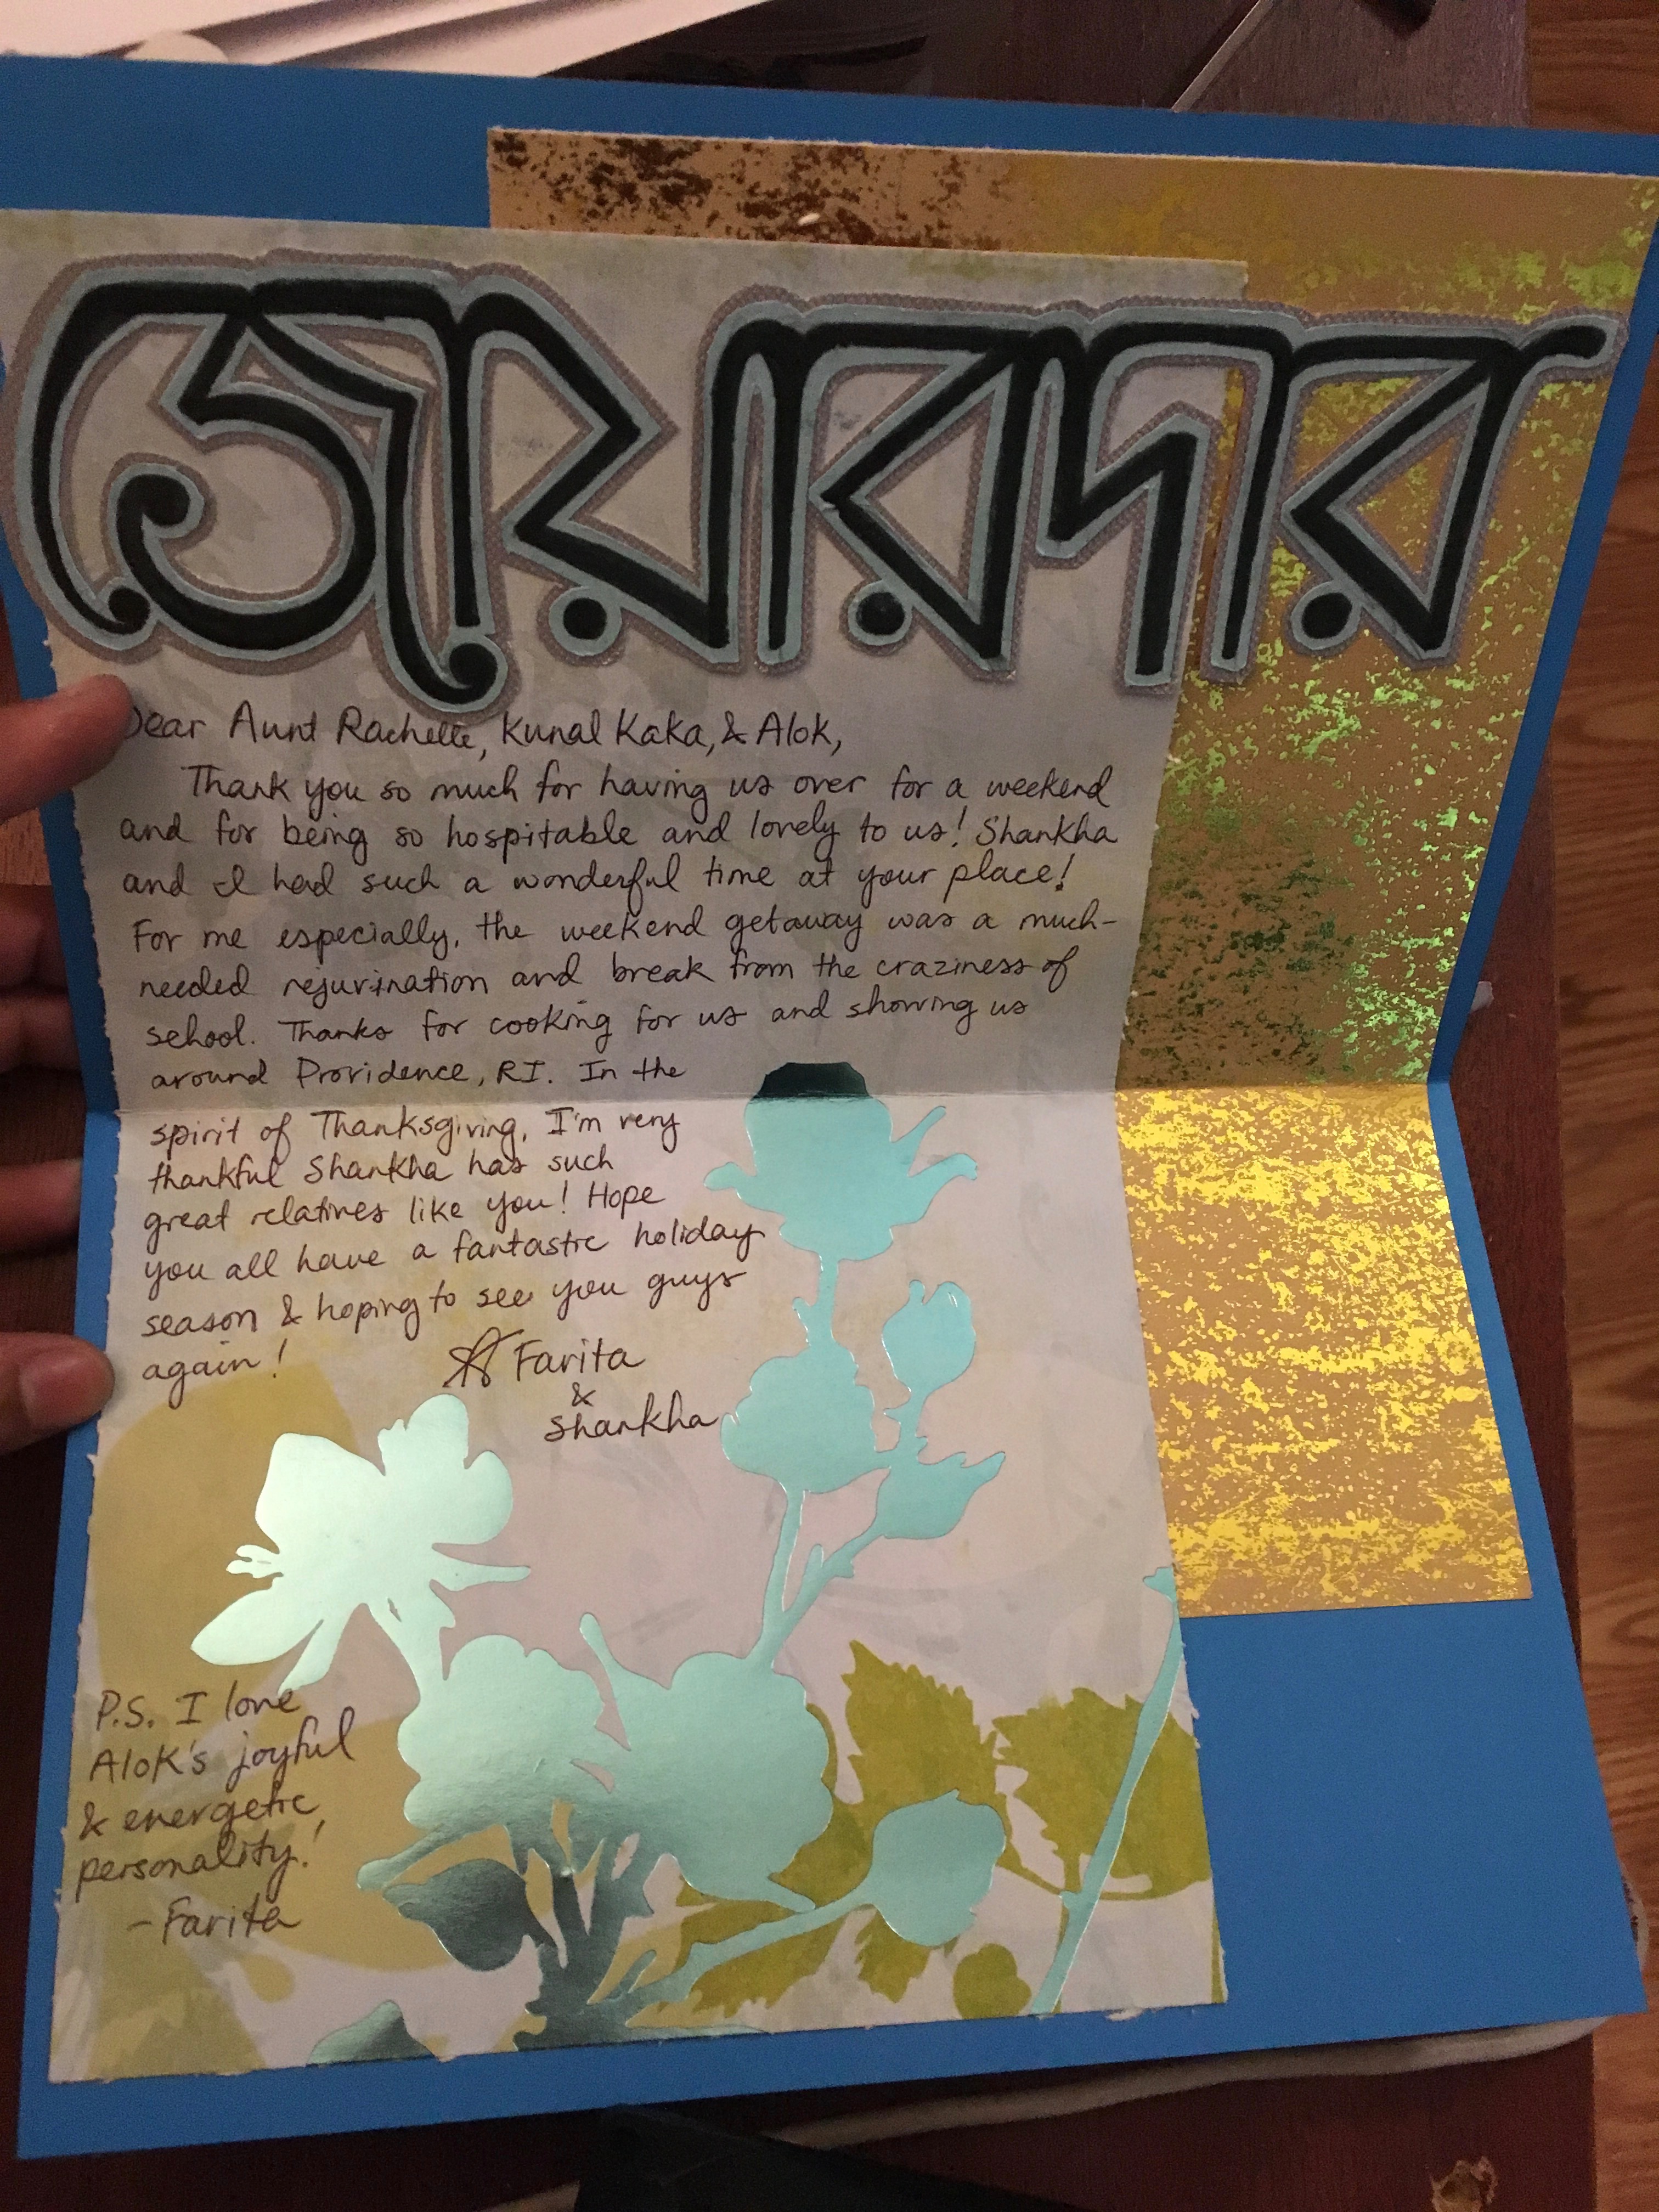 জোয়ারদার
Dear Aunt Rachelle, Kunal Kaka, & Alok,
Thank you so much for having us over for a weekend
and for being so hospitable and lovely to us! Shankha
and I had such a wonderful time at your place!
For me especially, the weekend getaway was a much-
needed rejuvination and break from the craziness of
school. Thanks for cooking for us and showing us
around Providence, RI. In the
spirit of Thanksgiving, I'm very
thankful Shankha has such
great relatives like you! Hope
you all have a fantastic holiday
season & hoping to see you guys
again!
Farita
&
Shankha
P.S. I love
Alok's joyful
& energetic
personality!
- Farita